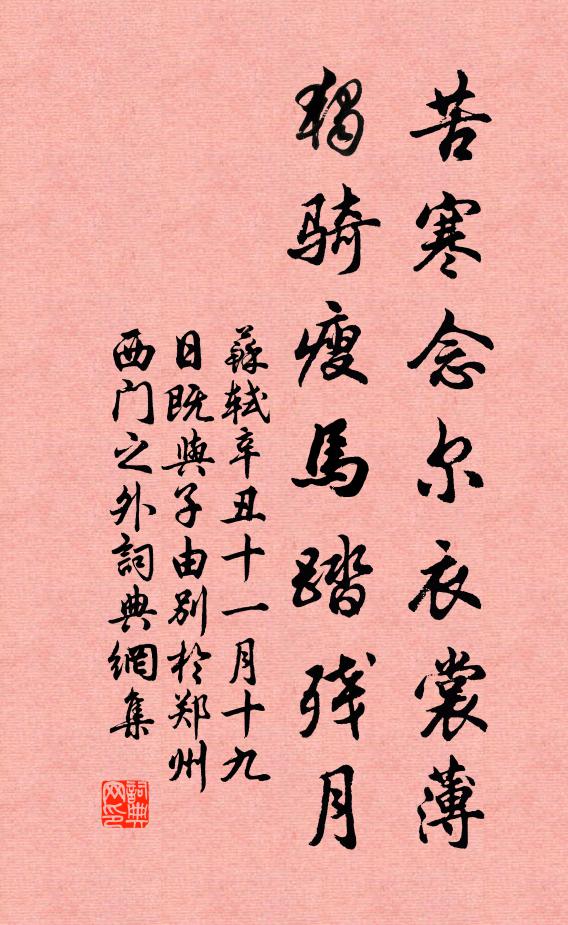 苦寒念尔衣裳薄
獨骑瘦馬踏残月
蘇轼辛丑十一月十九
日既與子由别於郑州
西门之外詞典網集
詞典网印